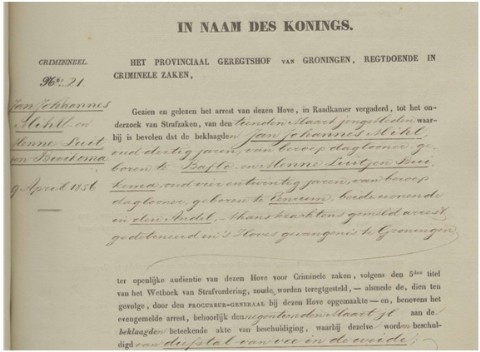 IN NAAM DES KONINGS.
CRIMINEEL.
No. 21
Jan Johannes
Mihl en
Menne Luit
jen Buikema
9 April 1856
HET PROVINCIAAL GEREGTSHOF VAN GRONINGEN, REGTDOENDE IN
CRIMINELE ZAKEN,
Gezien en gelezen het arrest van dezen Hove, in Raadkamer vergaderd, tot het on-
derzoek van Strafzaken, van den tienden Maart jongstleden waar-
bij is bevolen dat de beklaagden Jan Johannes Mihl,
oud dertig jaren, van beroep daglooner, ge-
boren te Baflo en Menne Luitjen Bui
kema, oud vier en twintig jaren, van beroep
daglooner geboren te Eenrum beide wonende
in den Andel, thans krachtens gemeld arrest
gedetineerd in 's Hoves gevangenis te Groningen
ter openlijke audientie van dezen Hove voor Criminele zaken, volgens den 5den titel
van het Wetboek van Strafvordering, zouden worden teregtgesteld, — alsmede de, dien ten
gevolge, door den PROCUREUR-GENERAAL bij dezen Hove opgemaakte — en, benevens het
evengemelde arrest, behoorlijk den negentienden Maart jl aan de
beklaagden beteekende akten van beschuldiging, waarbij dezelve worden beschul-
digd van diefstal van vee in de weide,